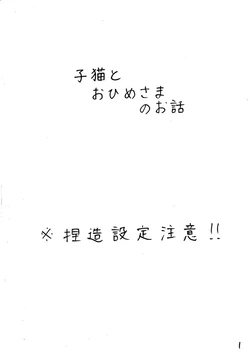 子猫と
おひめさま
のお話
※捏造設定注意!!
1